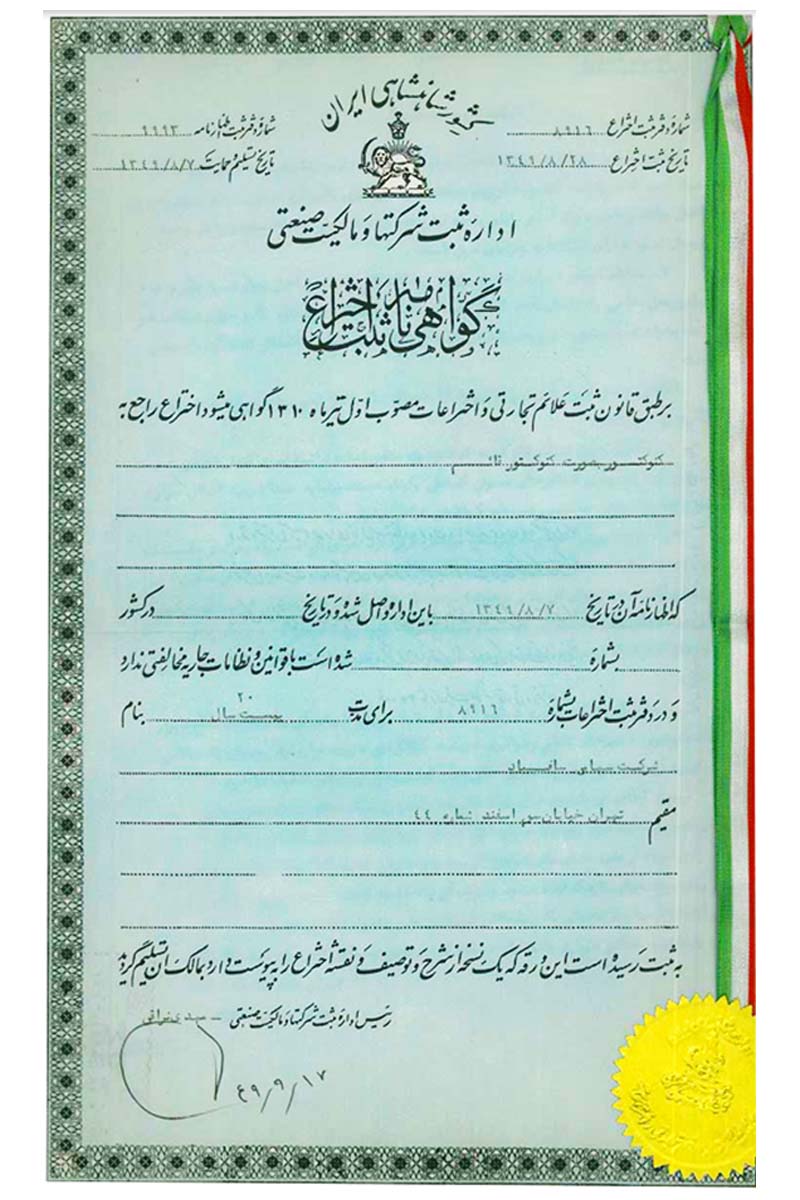 کشور شاهنشاهی ایران
شماره دفتر ثبت اختراع ۸۹۱۶
شماره دفتر ثبت اظهارنامه ۹۹۹۳
تاریخ ثبت اختراع ۱۳۴۹/۸/۲۸
تاریخ تسلیم و حمایت ۱۳۴۹/۸/۷
اداره ثبت شرکتها و مالکیت صنعتی
گواهی نامه ثبت اختراع
بر طبق قانون ثبت علائم تجارتی و اختراعات مصوب اول تیر ماه ۱۳۱۰ گواهی میشود اختراع راجع به
کنوکتور بصورت کنوکتور قائم
که اظهارنامه آن در تاریخ ۱۳۴۹/۸/۷ باین اداره واصل شده و در تاریخ در کشور
بشماره شده است با قوانین و نظامات جاریه مخالفتی ندارد
و در دفتر ثبت اختراعات بشماره ۸۹۱۶ برای مدت ۲۰ بیست سال بنام
شرکت سهامی
مقیم تهران خیابان سی اسفند شماره ۴۴
به ثبت رسیده است این ورقه که یک نسخه از شرح و توصیف و نقشه اختراع را به پیوست دارد بمالک آن تسلیم گردید
رئیس اداره ثبت شرکتها و مالکیت صنعتی - مهدی نراقی
۴۹/۹/۱۷